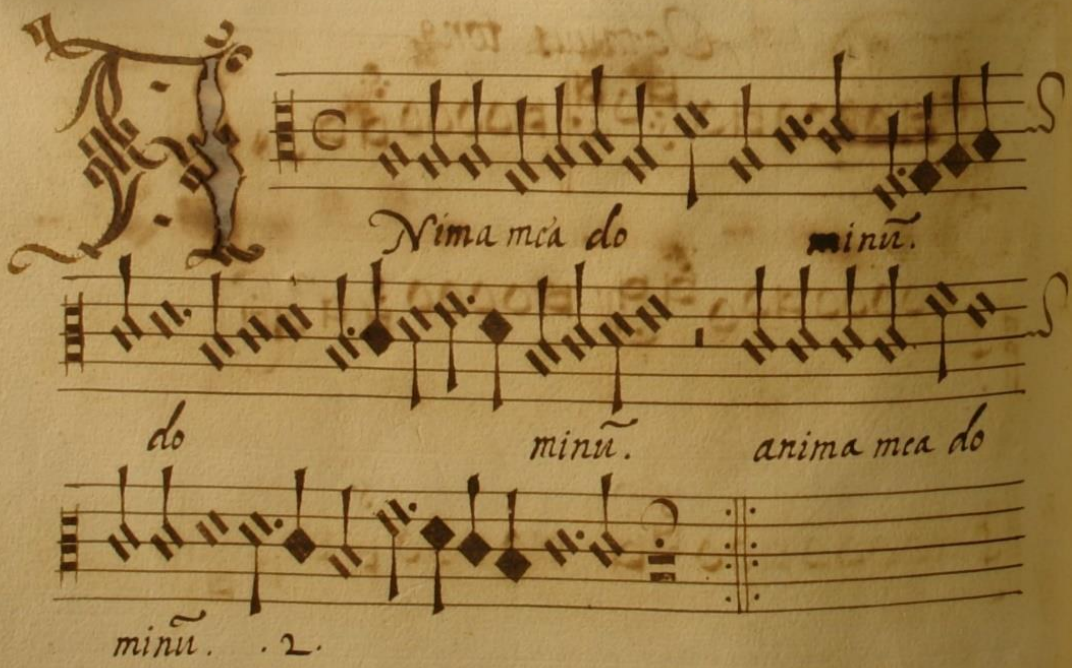 A Nima mea do minū.
do minū. anima mea do
minū. .2.